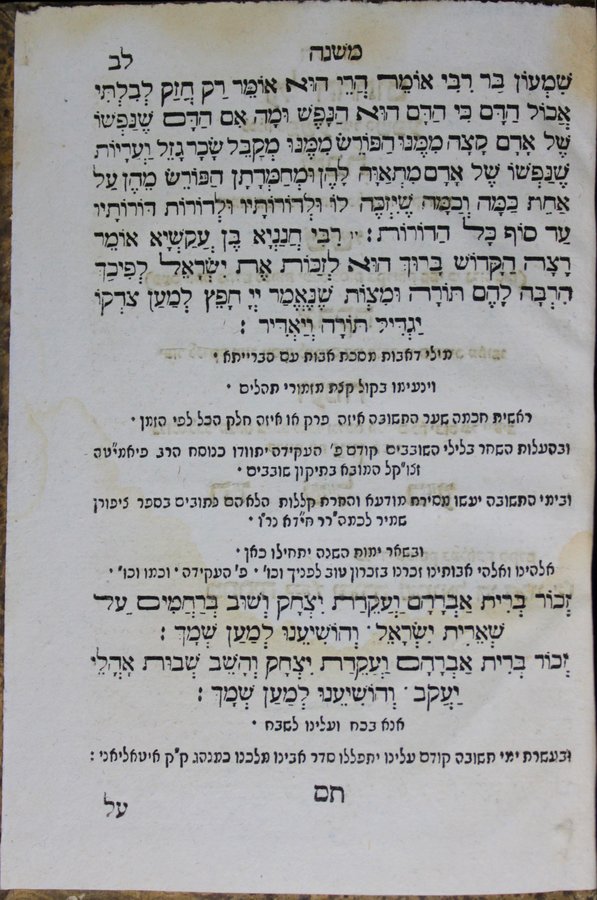 משנה
לב
שִׁמְעוֹן בַּר רִבִּי אוֹמֵר הֲרֵי הוּא אוֹמֵר רַק חֲזַק לְבִלְתִּי
אֲכוֹל הַדָּם כִּי הַדָּם הוּא הַנָּפֶשׁ וּמָה אִם הַדָּם שֶׁנַּפְשׁוֹ
שֶׁל אָדָם קָצָה מִמֶּנּוּ הַפּוֹרֵשׁ מִמֶּנּוּ מְקַבֵּל שָׂכָר גָּזֵל וַעֲרָיוֹת
שֶׁנַּפְשׁוֹ שֶׁל אָדָם מִתְאַוָּה לָהֶן וּמְחַמַּדְתָּן הַפּוֹרֵשׁ מֵהֶן עַל
אַחַת כַּמָּה וְכַמָּה שֶׁיִּזְכֶּה לוֹ וּלְדוֹרוֹתָיו וּלְדוֹרוֹת דּוֹרוֹתָיו
עַד סוֹף כָּל הַדּוֹרוֹת : יו רִבִּי חֲנַנְיָא בֶּן עֲקַשְׁיָא אוֹמֵר
רָצָה הַקָּדוֹשׁ בָּרוּךְ הוּא לְזַכּוֹת אֶת יִשְׂרָאֵל לְפִיכָךְ
הִרְבָּה לָהֶם תּוֹרָה וּמִצְוֹת שֶׁנֶּאֱמַר יְיָ חָפֵץ לְמַעַן צִדְקוֹ
יַגְדִּיל תּוֹרָה וְיַאְדִּיר :
מילי דאבות מסכת אבות עם הברייתא •
וינעימו בקול קצת מזמורי תהלים •
ראשית חכמה שער התשובה איזה פרק או איזה חלק הכל לפי הזמן •
ובהעלות השחר בלילי השובבים קודם פ' העקידה יתוודו כנוסח הרב פיאמי"טה
זצו"קל המובא בתיקון שובבים •
ובימי התשובה יעשו מסירת מודעא והתרת קללות הלא הם כתובים בספר ציפורן
שמיר לכמה"רר חי"דא נר"ו •
ובשאר ימות השנה יתחילו כאן •
אלהינו ואלהי אבותינו זכרנו בזכרון טוב לפניך וכו' • פ' העקידה • וכמו וכו' •
זְכוֹר בְּרִית אַבְרָהָם וַעֲקֵדַת יִצְחָק וְשׁוּב בְּרַחֲמִים עַל
שְׁאֵרִית יִשְׂרָאֵל • וְהוֹשִׁיעֵנוּ לְמַעַן שְׁמָךְ :
זְכוֹר בְּרִית אַבְרָהָם וַעֲקֵדַת יִצְחָק וְהָשֵׁב שְׁבוּת אָהֳלֵי
יַעֲקֹב • וְהוֹשִׁיעֵנוּ לְמַעַן שְׁמָךְ :
אנא בכח ועלינו לשבח •
ובעשרת ימי תשובה קודם עלינו יתפללו סדר אבינו מלכנו כמנהג ק"ק איטאליאני :
תם
על